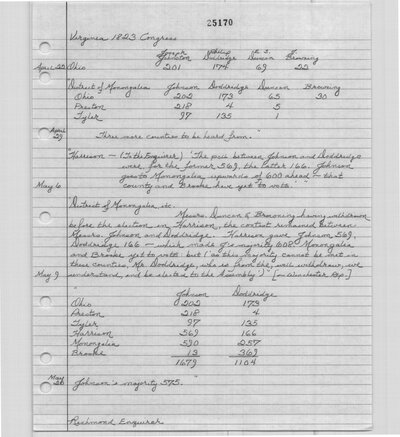 25170
Virginia 1823 Congress
Joseph Johnston Philip Doddridge E. S. Duncan J. Browning
April 22 Ohio 201 174 69 22
District of Monongalea Johnson Doddridge Duncan Browning
Ohio 202 173 65 30
Preston 218 4 5
Tyler 97 135 1
April 29 Three more counties to be heard from."
Harrison — (To the Enquirer) "The polls between Johnson and Doddridge
were, for the former 569, the latter 166. Johnson
goes to Monongalea upwards of 600 ahead — that
May 6 county and Brooke have yet to vote."
District of Monongalia, etc.
Messrs. Duncan & Browning having withdrawn
before the election in Harrison, the contest remained between
Messrs. Johnson and Doddridge. Harrison gave Johnson 569
Doddridge 166 — which made J's majority 608. Monongalea
and Brooke yet to vote but (as this majority cannot be met in
these counties, Mr. Doddridge, who is from Brooke, will withdraw, we
May 9 understand, and be elected to the Assembly.) [in Winchester Rep.]
" Johnson Doddridge
Ohio 202 173
Preston 218 4
Tyler 97 135
Harrison 569 166
Monongalea 580 257
Brooke 13 369
1679 1104
May 20 Johnson's majority 575."
Richmond Enquirer